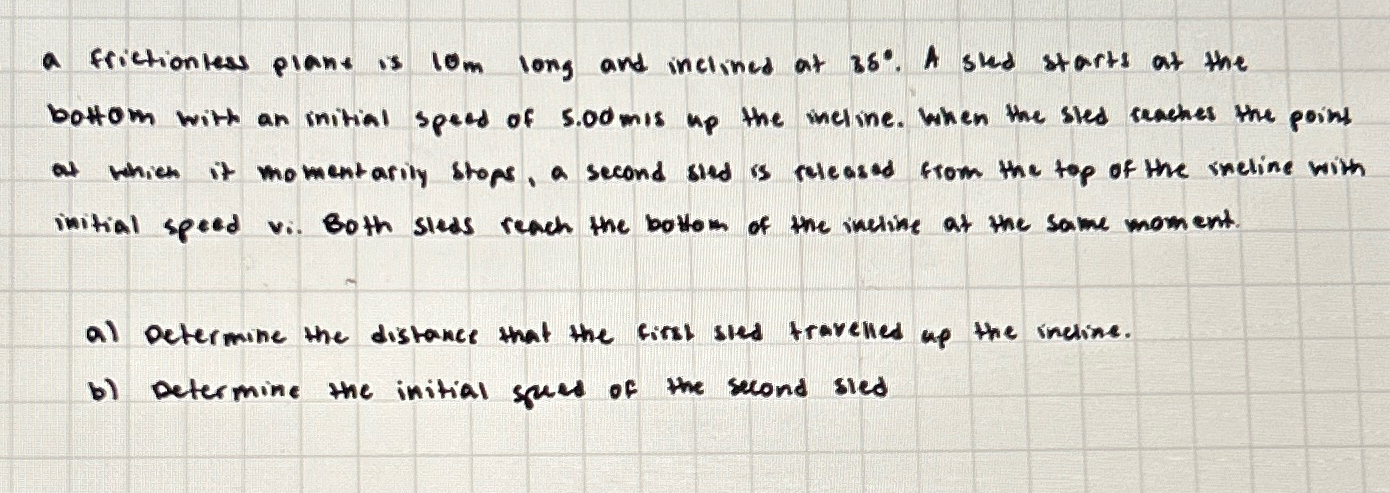 a frictionless plane is 10m long and inclined at 35°. A sled starts at the
bottom with an initial speed of 5.00m/s up the incline. When the sled reaches the point
at which it momentarily stops, a second sled is released from the top of the incline with
initial speed vi. Both sleds reach the bottom of the incline at the same moment.
a) Determine the distance that the first sled travelled up the incline.
b) Determine the initial speed of the second sled